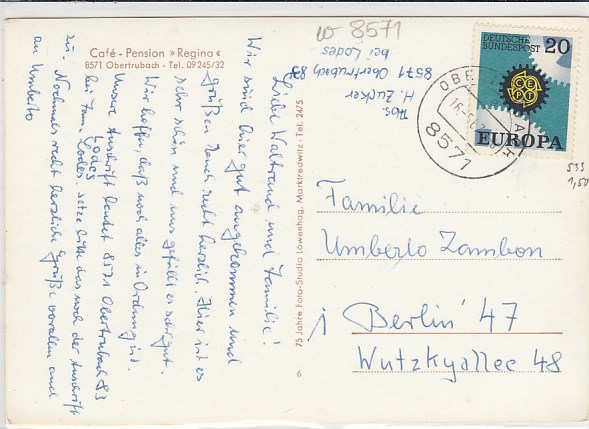 Café - Pension »Regina«
8571 Obertrubach · Tel. 09245/32
Liebe Waltraud und Familie!
Wir sind hier gut angekommen und
grüßen Euch recht herzlich. Hier ist es
sehr schön und uns gefällt es sehr gut.
Wir hoffen, daß noch alles in Ordnung ist.
Unsere Anschrift lautet 8571 Obertrubach 83
bei Fam. Lodes. Lodes setze bitte das noch der Anschrift
zu. Nochmals recht herzliche Grüße an allen und
an Umberto
Abs.
H. Zucker
8571 Obertrubach 83
bei Lodes
w 8571
75 Jahre Foto-Studio Löwenhag, Marktredwitz · Tel. 2475
6
DEUTSCHE
BUNDESPOST 20
CEPT
EUROPA
8571
533
1,50
Familie
Umberto Zambon
1 Berlin 47
Wutzkyallee 48